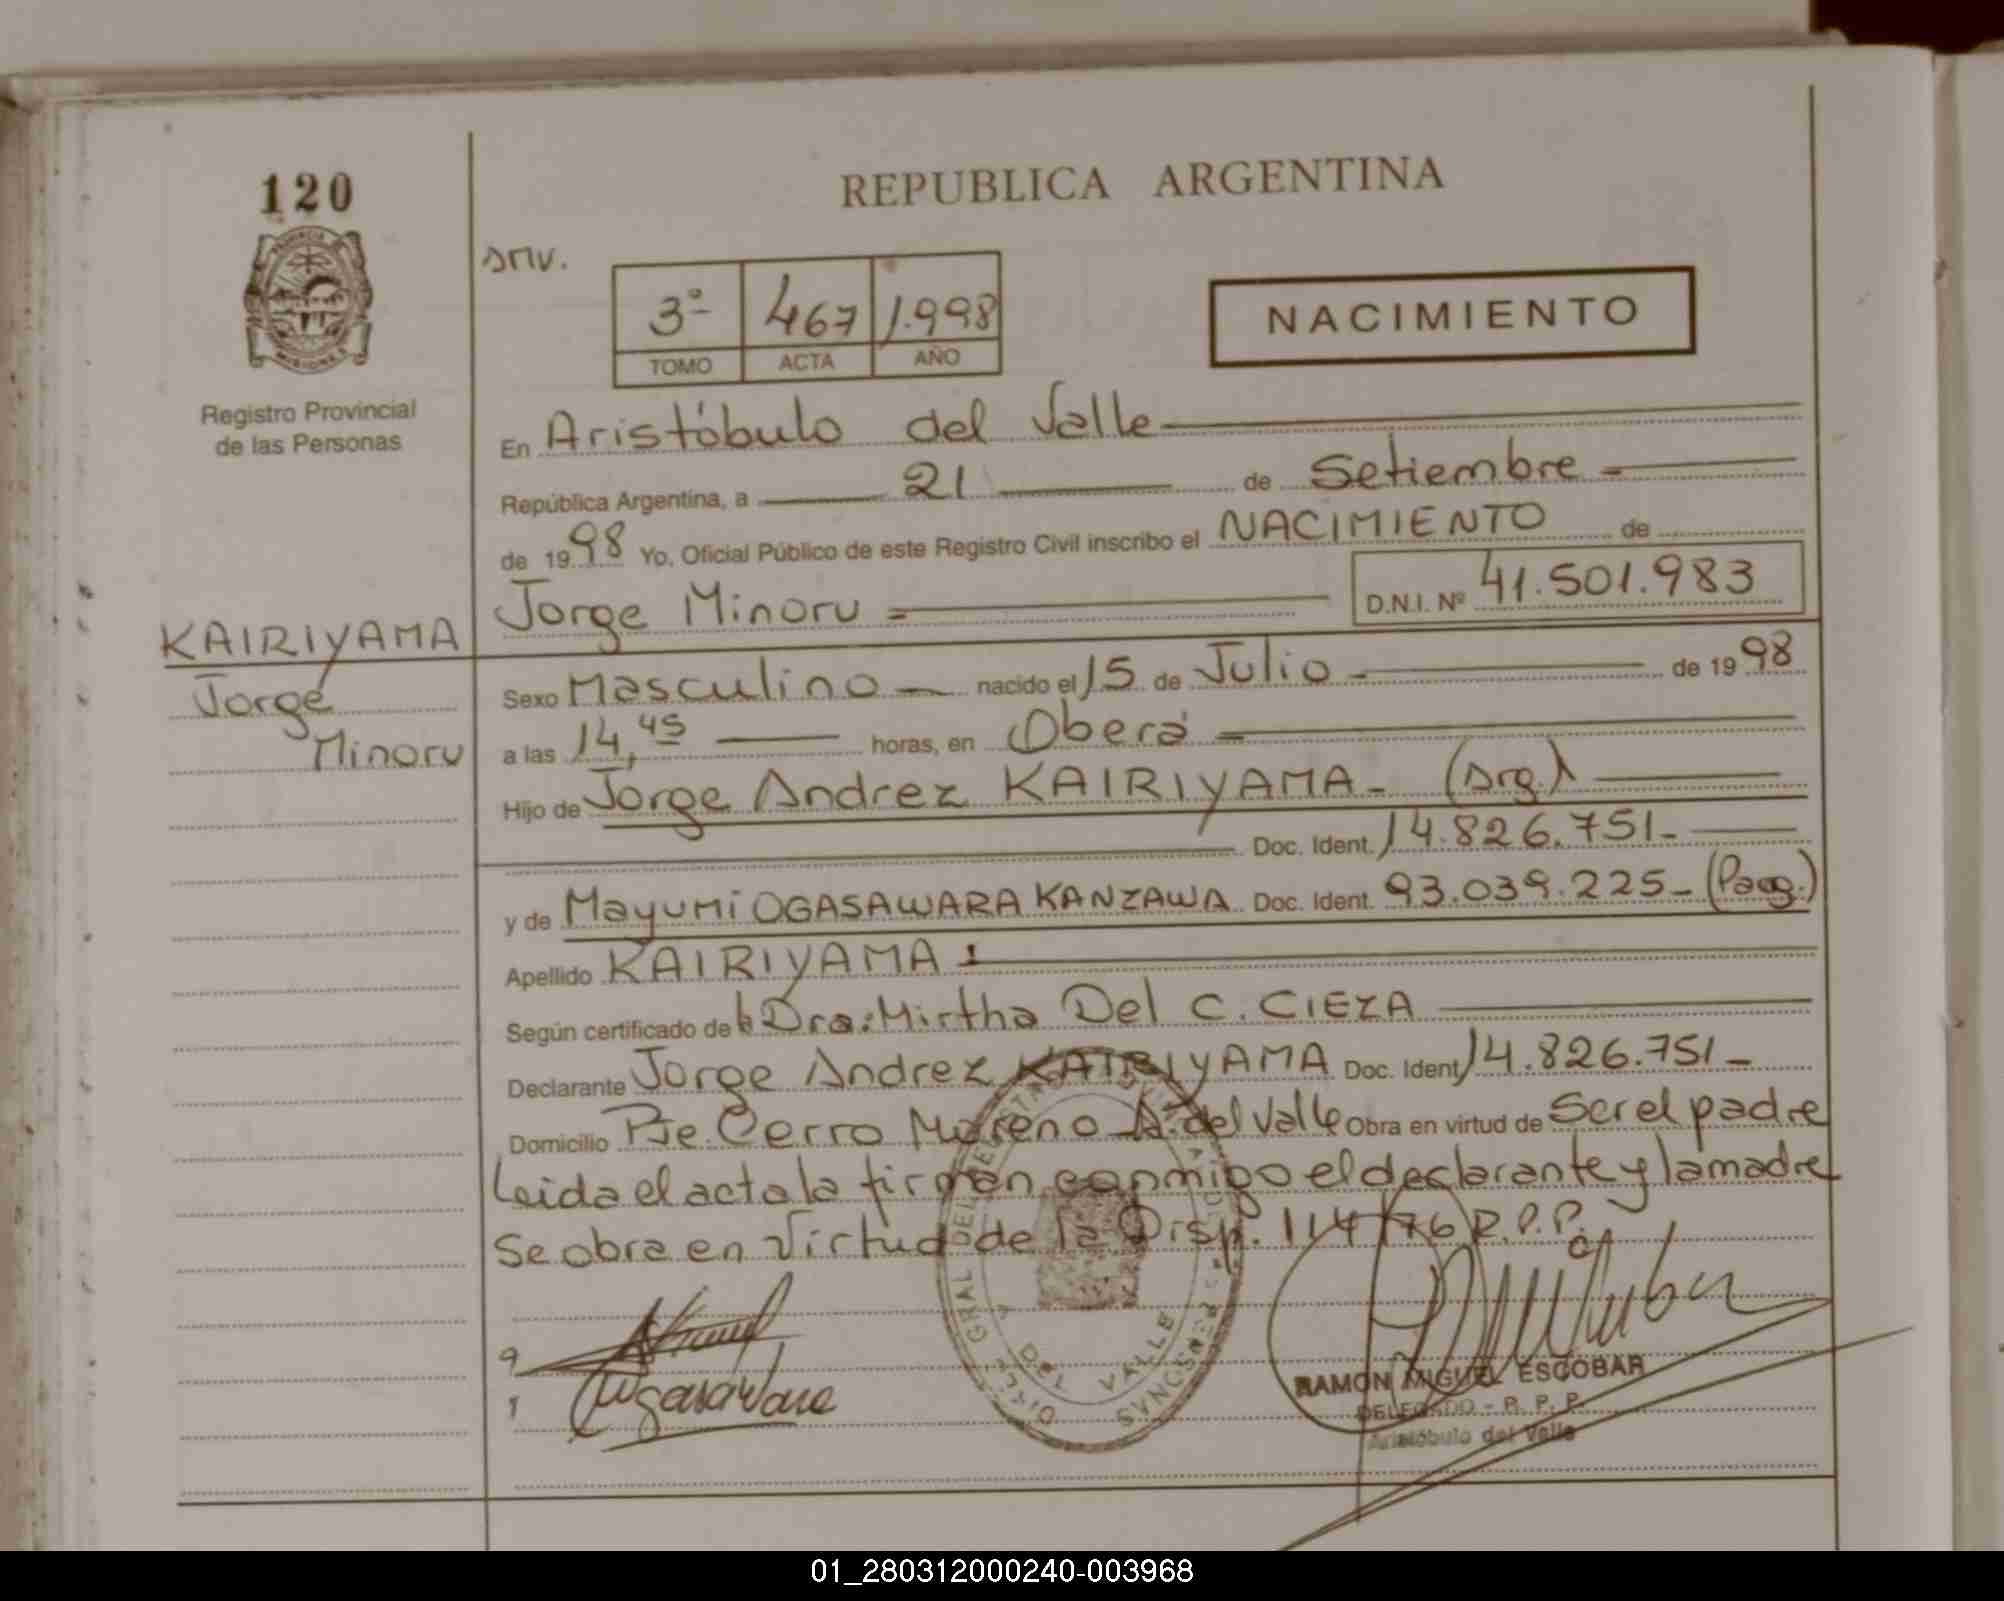 120
REPUBLICA ARGENTINA
PROVINCIA DE
MISIONES
Registro Provincial
de las Personas
3º 467 1.998
TOMO ACTA AÑO
NACIMIENTO
En Aristóbulo del Valle
República Argentina, a 21 de Setiembre
de 1998 Yo, Oficial Público de este Registro Civil inscribo el NACIMIENTO de
Jorge Minoru D.N.I. Nº 41.501.983
KAIRIYAMA
Jorge
Minoru
Sexo Masculino nacido el 15 de Julio de 1998
a las 14,45 horas, en Oberá
Hijo de Jorge Andrez KAIRIYAMA - (Arg.)
Doc. Ident. 14.826.751-
y de Mayumi OGASAWARA KANZAWA Doc. Ident. 93.039.225- (Parag.)
Apellido KAIRIYAMA
Según certificado de la Dra: Mirtha Del C. CIEZA
Declarante Jorge Andrez KAIRIYAMA Doc. Ident 14.826.751-
Domicilio Pje. Cerro Moreno A. del Valle Obra en virtud de Ser el padre
Leida el acta la firman conmigo el declarante y la madre
Se obra en Virtud de la Disp. 114/76 R.P.P.
DEL VALLE
RAMON MIGUEL ESCOBAR
DELEGADO - R. P. P.
Aristóbulo del Valle
01_280312000240-003968